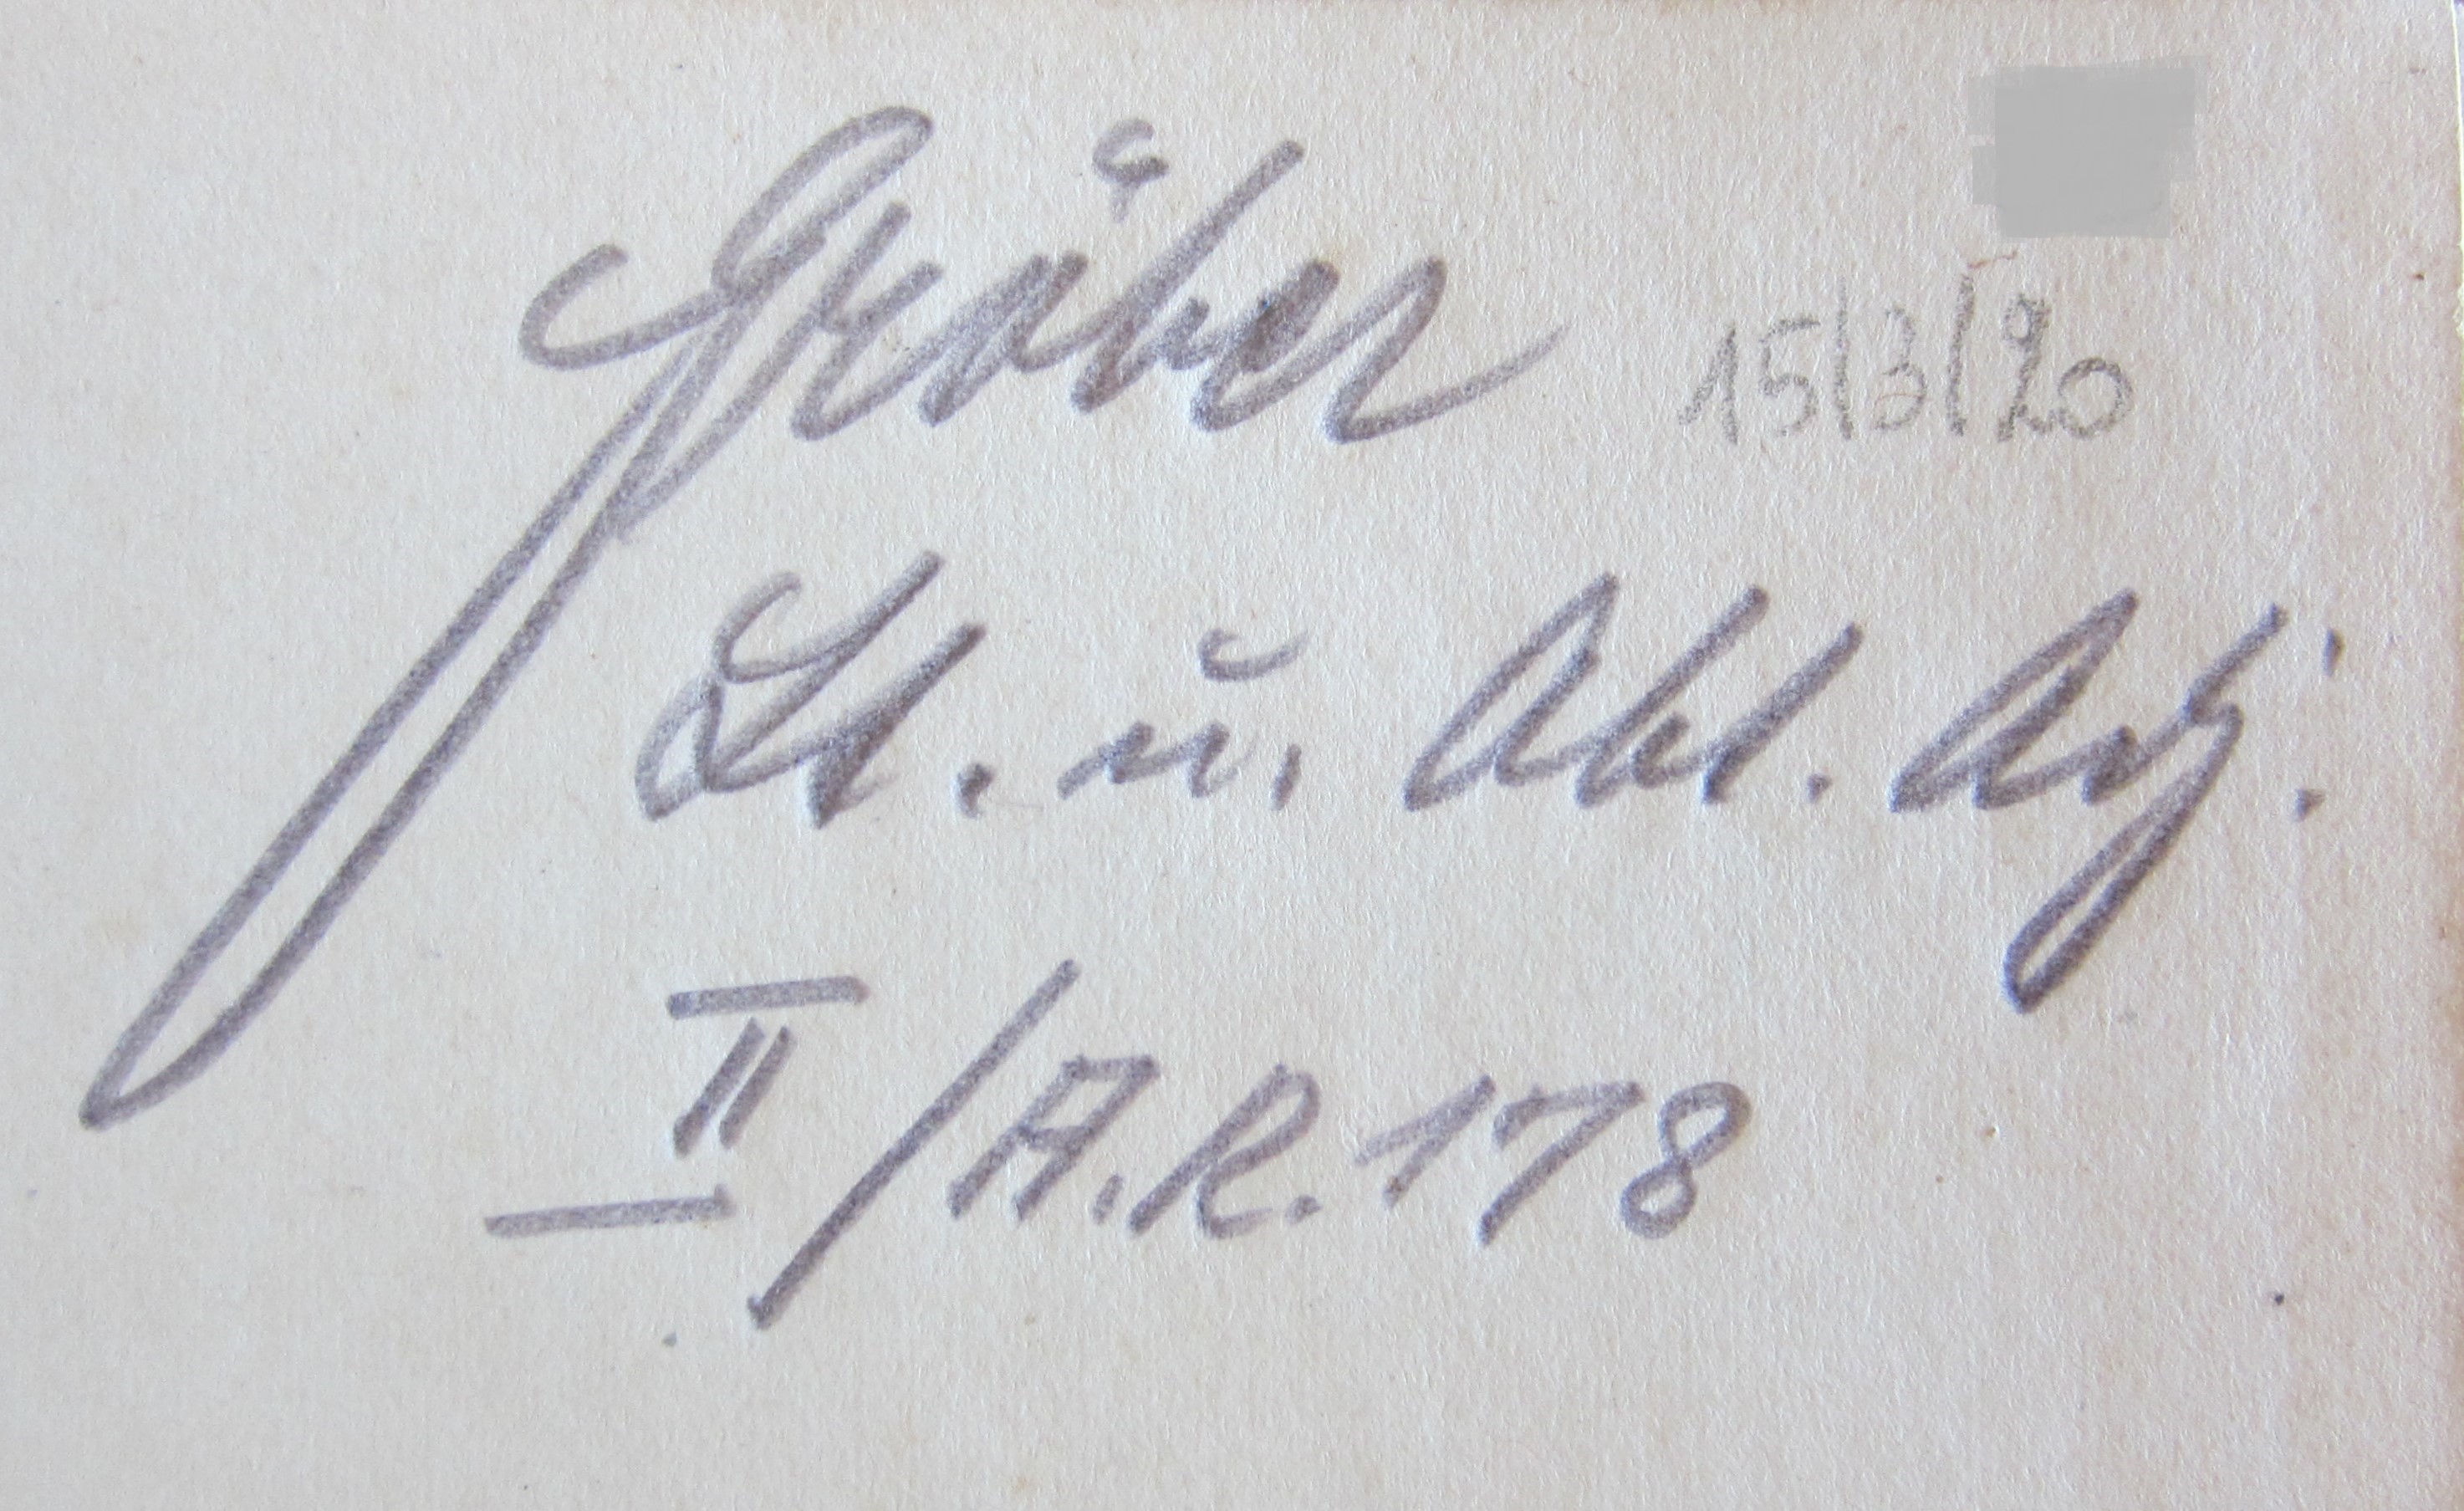 Gräber 15/3/20
Lt. u. Abt. Adj.
II/A.R.178